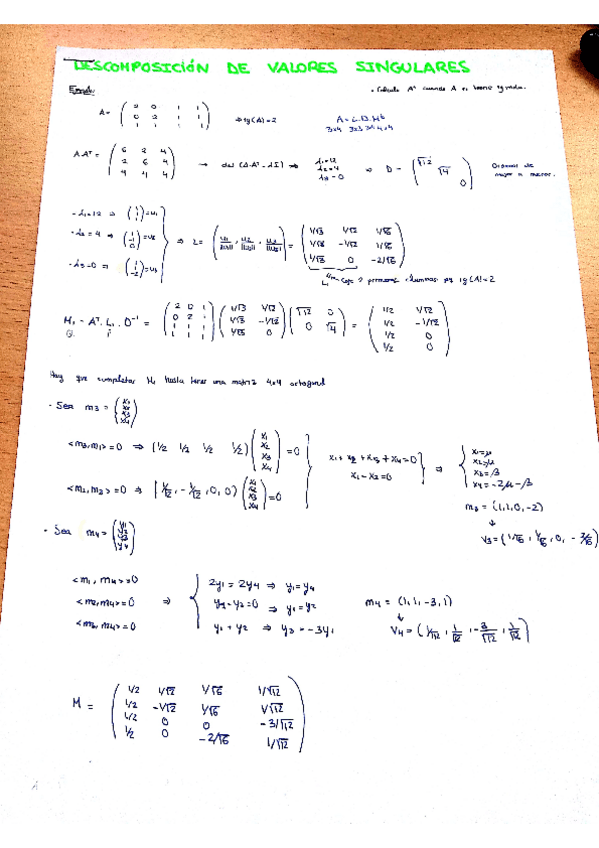 DESCOMPOSICIÓN DE VALORES SINGULARES
Ejemplo: • Calcula A⁺ cuando A no tiene
A = (2 0 1 1 / 0 2 1 1 / 1 1 1 1) ⇒ rg(A)=2 A = L.D.Mᵗ
3x4 3x3 3x4 4x4
A·Aᵀ = (6 2 4 / 2 6 4 / 4 4 4) → det (A·Aᵀ - λI) ⇒ λ₁=12 λ₂=4 λ₃=0 ⇒ D = (√12 √4 0) Ordenados de mayor a menor.
- λ₁=12 ⇒ (1 1 1)=u₁
- λ₂=4 ⇒ (1 -1 0)=u₂ ⇒ L = (u₁/||u₁||, u₂/||u₂||, u₃/||u₃||) = (1/√3 1/√2 1/√6 / 1/√3 -1/√2 1/√6 / 1/√3 0 -2/√6)
- λ₃=0 ⇒ (1 1 -2)=u₃
L₁ 2 primeras columnas pq rg(A)=2
M₁ = Aᵀ. L₁. D⁻¹ = (2 0 1 / 0 2 1 / 1 1 1 / 1 1 1) (1/√3 1/√2 / 1/√3 -1/√2 / 1/√3 0) (√12 0 / 0 √4) = (1/2 1/√2 / 1/2 -1/√2 / 1/2 0 / 1/2 0)
Hay que completar M₁ hasta tener una matriz 4x4 ortogonal
- Sea m₃ = (x₁ x₂ x₃ x₄)
<m₃,m₁>=0 ⇒ (1/2 1/2 1/2 1/2) (x₁ x₂ x₃ x₄) =0
x₁+x₂+x₃+x₄=0
x₁-x₂=0
⇒ x₁=μ
x₂=μ
x₃=β
x₄=-2μ-β
<m₂,m₃>=0 ⇒ (1/√2, -1/√2, 0, 0) (x₁ x₂ x₃ x₄) =0
m₃ = (1,1,0,-2)
↓
V₃=(1/√6, 1/√6, 0, -2/√6)
• Sea m₄ = (y₁ y₂ y₃ y₄)
<m₁, m₄>=0 2y₁ = 2y₄ ⇒ y₁=y₄
<m₂,m₄>=0 ⇒ y₁-y₂=0 ⇒ y₁=y₂ m₄ = (1,1,-3,1)
<m₃,m₄>=0 y₁+y₂ ⇒ y₃=-3y₁
↓
V₄ = (1/√12, 1/√12, -3/√12, 1/√12)
M = (1/2 1/√2 1/√6 1/√12 / 1/2 -1/√2 1/√6 1/√12 / 1/2 0 0 -3/√12 / 1/2 0 -2/√6 1/√12)